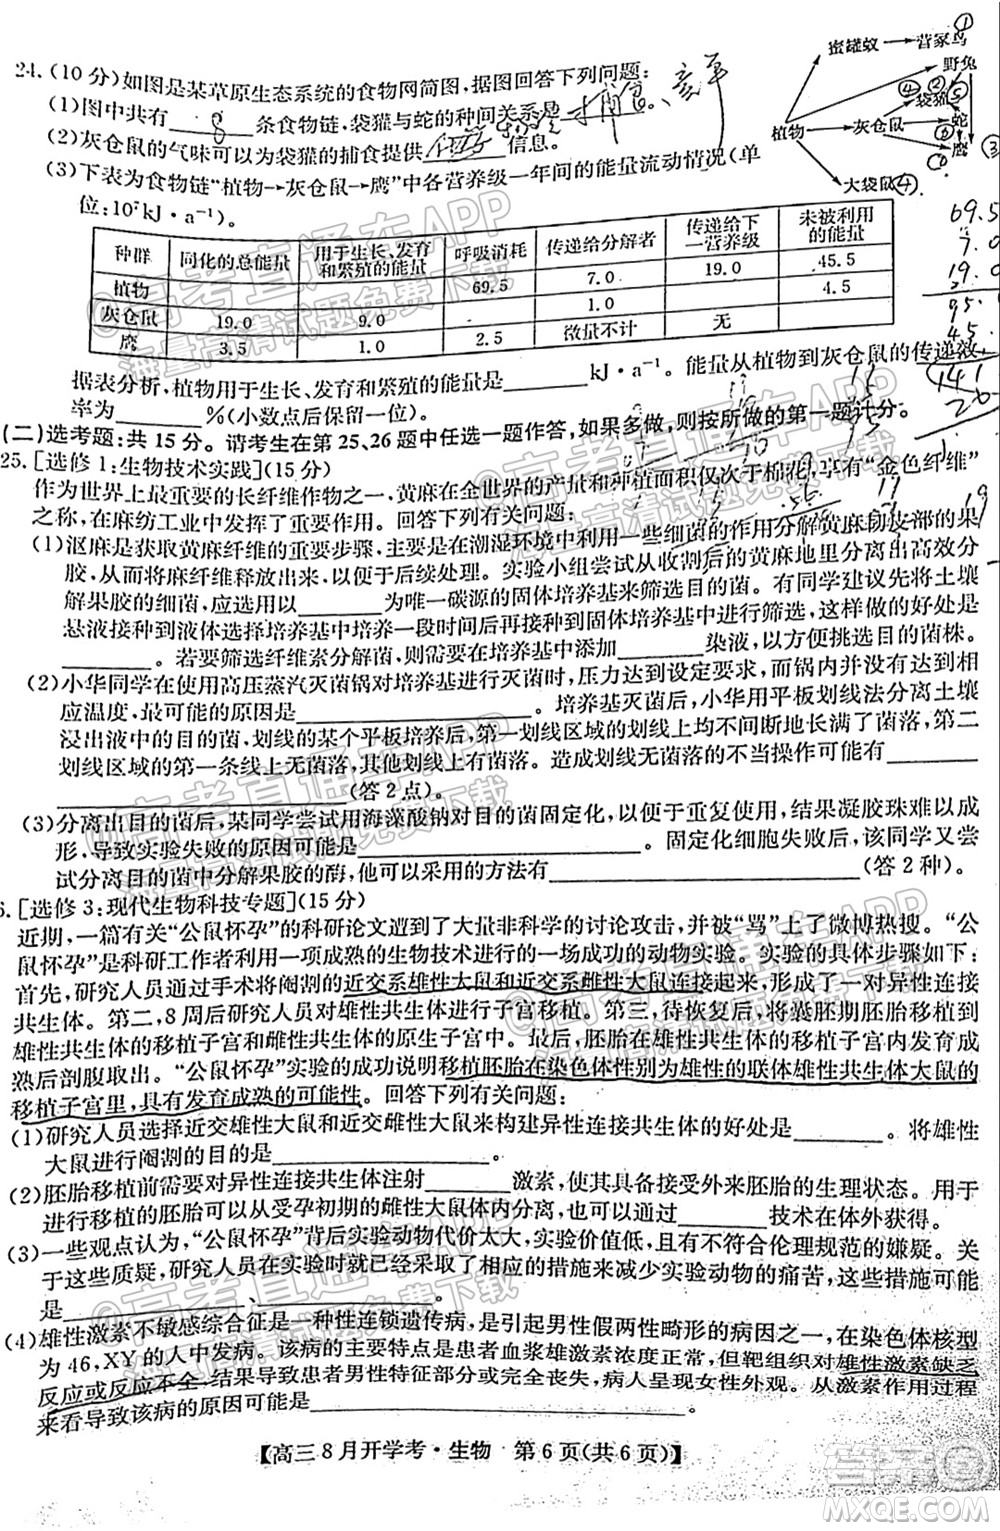 24.(10 分)如图是某草原生态系统的食物网简图,据图回答下列问题:
(1)图中共有 8 条食物链,袋獾与蛇的种间关系是 捕食、竞争
(2)灰仓鼠的气味可以为袋獾的捕食提供 化学 信息。
(3)下表为食物链“植物→灰仓鼠→鹰”中各营养级一年间的能量流动情况(单
位:10⁷kJ·a⁻¹)。
蜜罐蚁 → 营冢鸟 ①
野兔
袋獾
植物 → 灰仓鼠 蛇
鹰 ③
大袋鼠 ④
种群 同化的总能量 用于生长、发育和繁殖的能量 呼吸消耗 传递给分解者 传递给下一营养级 未被利用的能量
植物 69.5 7.0 19.0 45.5
灰仓鼠 19.0 9.0 1.0 4.5
鹰 3.5 1.0 2.5 微量不计 无
69.5
7.0
19.0
95.
45.
141
据表分析,植物用于生长、发育和繁殖的能量是______kJ·a⁻¹。能量从植物到灰仓鼠的传递效
率为______%(小数点后保留一位)。
(二)选考题:共 15 分。请考生在第 25、26 题中任选一题作答,如果多做,则按所做的第一题计分。
25.[选修 1:生物技术实践](15 分)
作为世界上最重要的长纤维作物之一,黄麻在全世界的产量和种植面积仅次于棉花,享有“金色纤维”
之称,在麻纺工业中发挥了重要作用。回答下列有关问题:
(1)沤麻是获取黄麻纤维的重要步骤,主要是在潮湿环境中利用一些细菌的作用分解黄麻韧皮部的果
胶,从而将麻纤维释放出来,以便进行后续处理。实验小组尝试从收割后的黄麻地里分离出高效分
解果胶的细菌,应使用以______为唯一碳源的固体培养基来培养目的菌。有同学建议先将土壤
悬液接种到液体选择培养基中培养一段时间再接种到固体培养基中进行筛选,这样做的好处是
______。若要筛选纤维素分解菌,则需要在培养基中添加______染液,以方便挑选目的菌株。
(2)小华同学在使用高压蒸汽灭菌锅对培养基进行灭菌时,压力达到设定要求,而锅内并没有达到相
应温度,最可能的原因是______。培养基灭菌后,小华用平板划线法分离土壤
浸出液中的目的菌,划线的某个平板培养后,第一划线区域的划线上均不间断地长满了菌落,第二
划线区域的第一条线上无菌落,其他划线上有菌落。造成划线无菌落的不当操作可能有______
______(答 2 点)。
(3)分离出目的菌后,某同学尝试用海藻酸钠对目的菌固定化,以便于重复使用,结果凝胶珠难以成
形,导致实验失败的原因可能是______。固定化细胞失败后,该同学又尝
试分离目的菌中分解果胶的酶,他可采用的方法有______(答 2 种)。
6.[选修 3:现代生物科技专题](15 分)
近期,一篇有关“公鼠怀孕”的科研论文遭到了大量非科学的讨论攻击,并被“骂”上了微博热搜。“公
鼠怀孕”是科研工作者利用一项成熟的生物技术进行的一场成功的动物实验。具体步骤如下:
首先,研究人员通过手术将阉割的近交系雄性大鼠和近交系雌性大鼠连接起来,形成了一对异性连接
共生体。第二,8 周后研究人员对雄性共生体进行子宫移植。第三,待恢复后,将囊胚期胚胎移植到
雄性共生体的移植子宫和雌性共生体的原生子宫中。最后,胚胎在雄性共生体的移植子宫内发育成
熟后剖腹取出。“公鼠怀孕”实验的成功说明移植胚胎在染色体性别为雄性的联体雄性共生体大鼠的
移植子宫里,具有发育成熟的可能性。回答下列有关问题:
(1)研究人员选择近交雄性大鼠和近交雌性大鼠来构建异性连接共生体的好处是______。将雄性
大鼠进行阉割的目的是______。
(2)胚胎移植前需要对异性连接共生体注射______激素,使其具备接受外来胚胎的生理状态。用于
进行移植的胚胎可以从受孕初期的雌性大鼠体内分离,也可以通过______技术在体外获得。
(3)一些观点认为,“公鼠怀孕”背后实验动物代价太大,实验价值低,有违背伦理规范的嫌疑。关
于这些质疑,研究人员在实验时就已经采取了相应的措施来减少实验动物的痛苦,这些措施可能
是______、______。
(4)雄性激素不敏感综合征是一种性连锁遗传病,是男性假两性畸形的病因之一,在染色体核型
为 46,XY的人中发病。该病的主要特点是患者血浆雄激素浓度正常,但靶组织对雄性激素缺乏
反应或反应不全,结果导致患者男性特征部分或完全丧失,甚至呈现出女性外观。从激素作用过程
来看导致该病的原因可能是______。
【高三 8 月开学考·生物 第 6 页(共 6 页)】
@高考直通车APP
海量高清试题免费下载
答案圈
MXQE.COM